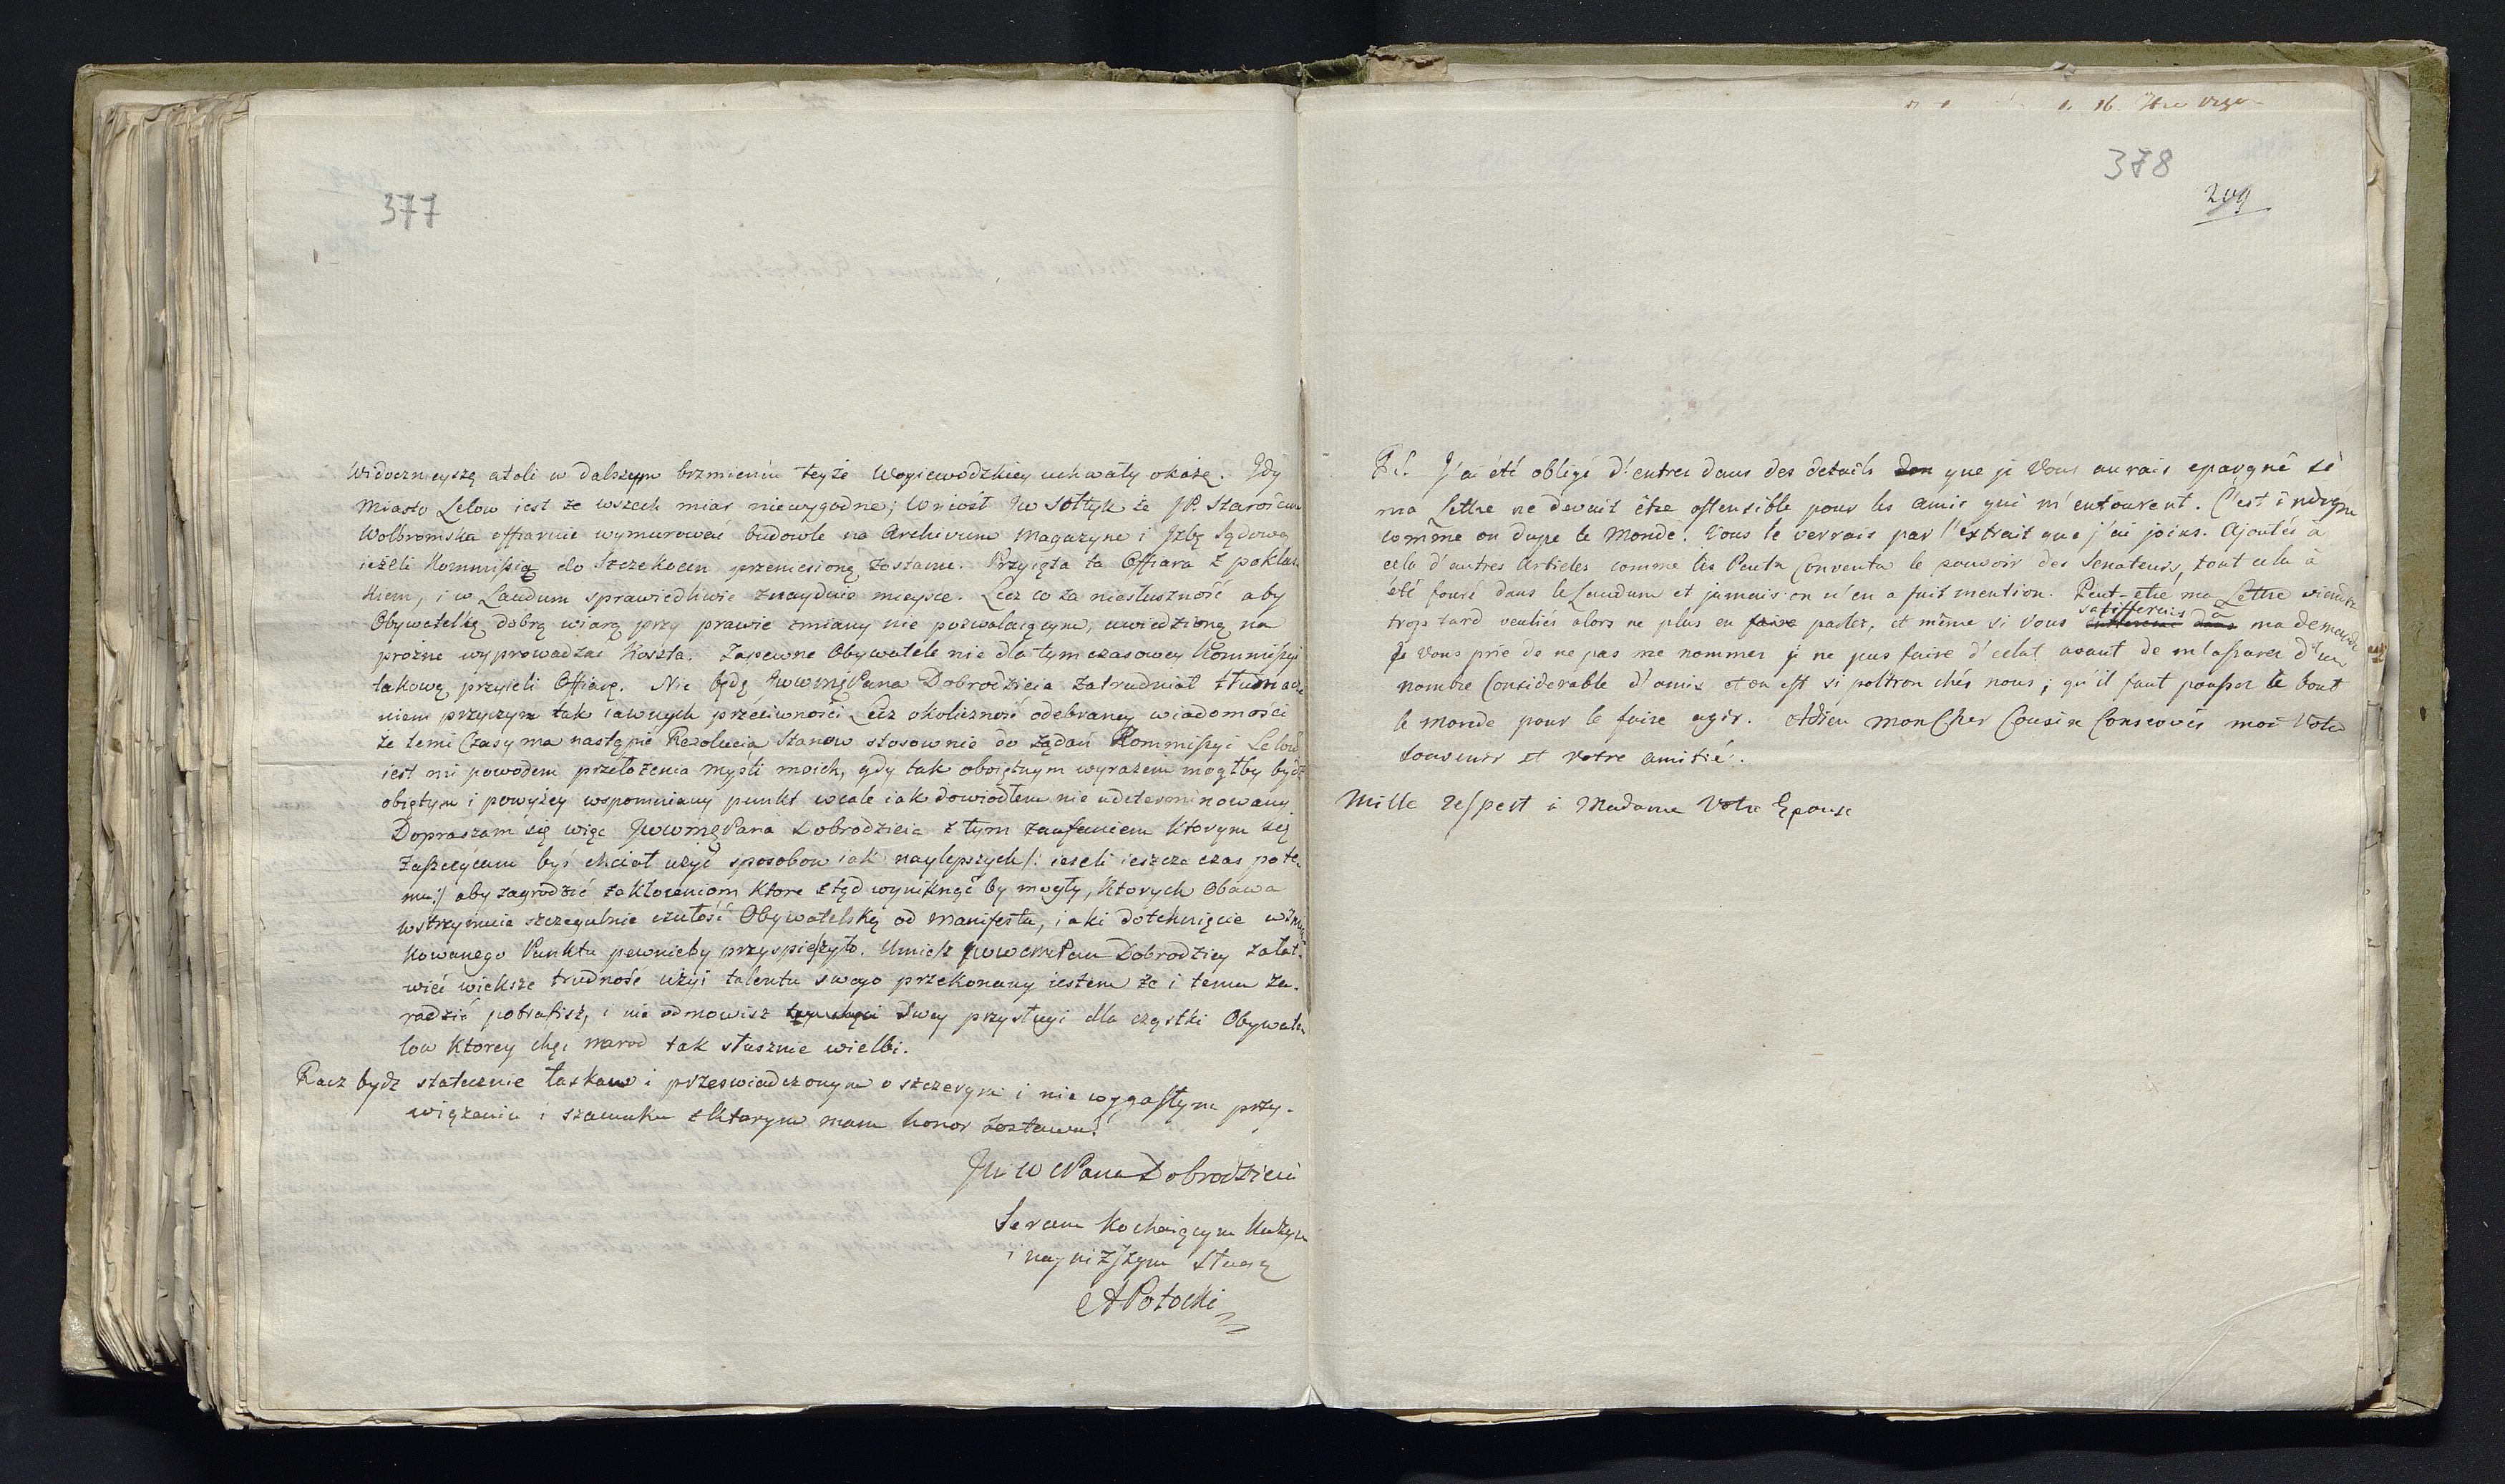 377
Widocznieyszą atoli w dalszym brzmieniu teyże Woyiewodzkiey uchwały okażę. Gdy
Miasto Lelow iest ze wszech miar niewygodne; Wniosł Jw Sołtyk że JP. Starościna
Wolbromska offiaruie wymurować budowle na Archivum Magazyne i Jzbę Sądową
ieżeli Kommissią do Szczekocin przeniesioną zostanie. Przyięta ta Offiara z poklas-
kiem, i w Laudum sprawiedliwie znayduie mieysce. Lecz co za niesłuszność aby
Obywatelką dobrą wiarą przy prawie zmiany nie pozwalaiącym, uwiedzioną na
prozne wyprowadzać koszta. Zapewne Obywatele nie dla tym czasowey Kommissyi
takową przyieli Offiarę. Nie będę JwwmgPana Dobrodzieia zatrudniał tłumacze
niem przyczyn tak iawnych przeciwności Lecz okoliczność odebraney wiadomości
że temi Czasy ma nastąpić Rezolucia Stanow stosownie do żądań Kommissyi Lelow
iest mi powodem przełożenia myśli moich, gdy tak oboiętnym wyrazem mogłby bydz
obiętym i powyżey wspomniany punkt wcale iak dowiodłem nie udeterminowany
Dopraszam się więc JwwmgPana Dobrodzieia z tym zaufaniem ktorym się
Zaszczycam byś chciał użyć sposobow iak naylepszych /: ieżeli ieszcze czas pote-
mu :/ aby zagrodzić zakłoceniom ktore z tąd wyniknąć by mogły, ktorych Obawa
wstrzymuie szczegulnie czułość Obywatelską od Manifestu, iaki dotchnięcie wzmian
kowanego Punktu pewnieby przyspieszyło. Umiesz JwwcmPan Dobrodziey załat-
wić większe trudność użyi talentu swego przekonany iestem że i temu za-
radzić potrafisz, i nie odmowisz Swey przysługi dla cząstki Obywate-
low ktorey chęć narod tak słusznie wielbi.
Racz bydz statecznie łaskaw i przeswiadczonym o szczerym i nie wygasłym przy-
wiązaniu i szacunku z ktorym mam honor zostawać
JWWPana Dobrodzieia
Sercem kochaiącym Kuzyn
i naynizszym Sługą
APotocki
16.
378
209
P.S. J'ai été obligé d'entrer dans des details don que je Vous aurais epargné si
ma Lettre ne devait être ostensible pour les amis qui m'entourent. C'est indigne
comme on dupe le Monde. Vous le verrais par l'extrait que j'ai joins. Ajoutés à
cela d'autres Articles comme les Pacta Conventa le pouvoir des Senateurs, tout cela à
été fouré dans le Laudum et jamais on n'en a fait mention. Peut-etre ma Lettre viendra
trop tard veuliés alors ne plus en faire parler, et même si Vous satisfferais à ma demande
Je Vous prie de ne pas me nommer je ne puis faire d'eclat avant de m'assurer d'un
nombre Considerable d'amis et on est si poltron chés nous; qu'il faut pousser le bout
le monde pour le faire agir. Adieu Mon Cher Cousin Conservés moi Votre
Souvenir et votre amitié.
Mille respect à Madame Votre Epouse